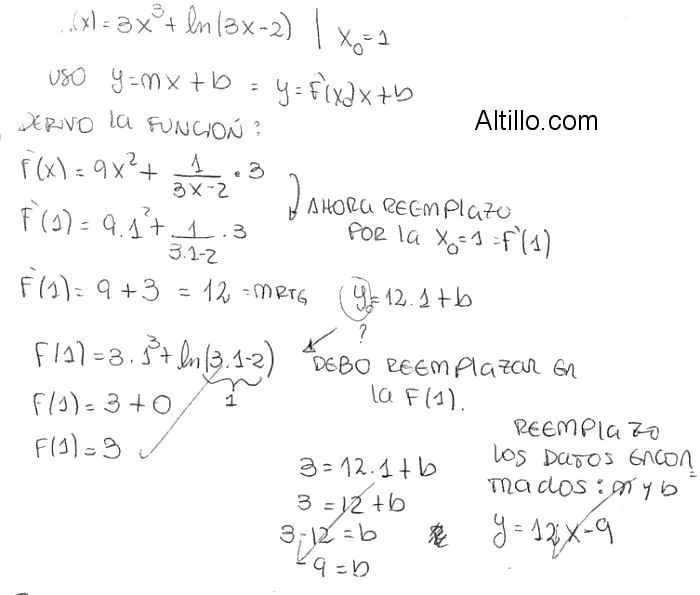 ..(x) = 3x³ + ln(3x-2) | x₀=1
USO y=mx+b = y=F'(x₀)x+b
DERIVO la FUNCIÓN:
Altillo.com
F'(x) = 9x² + 1/(3x-2) · 3
F'(1) = 9.1² + 1/(3.1-2) · 3
AHORA REEMPLAZO
POR la x₀=1 = F'(1)
F'(1) = 9 + 3 = 12 = mRTG
y₀=12.1+b
?
F(1) = 3.1³ + ln(3.1-2)
1
DEBO REEMPLAZAR EN
la F(1).
F(1) = 3 + 0
F(1) = 3
3=12.1+b
3=12+b
3-12=b
-9=b
REEMPLAZO
LOS DATOS ENCON=
TRADOS: m y b
y=12x-9